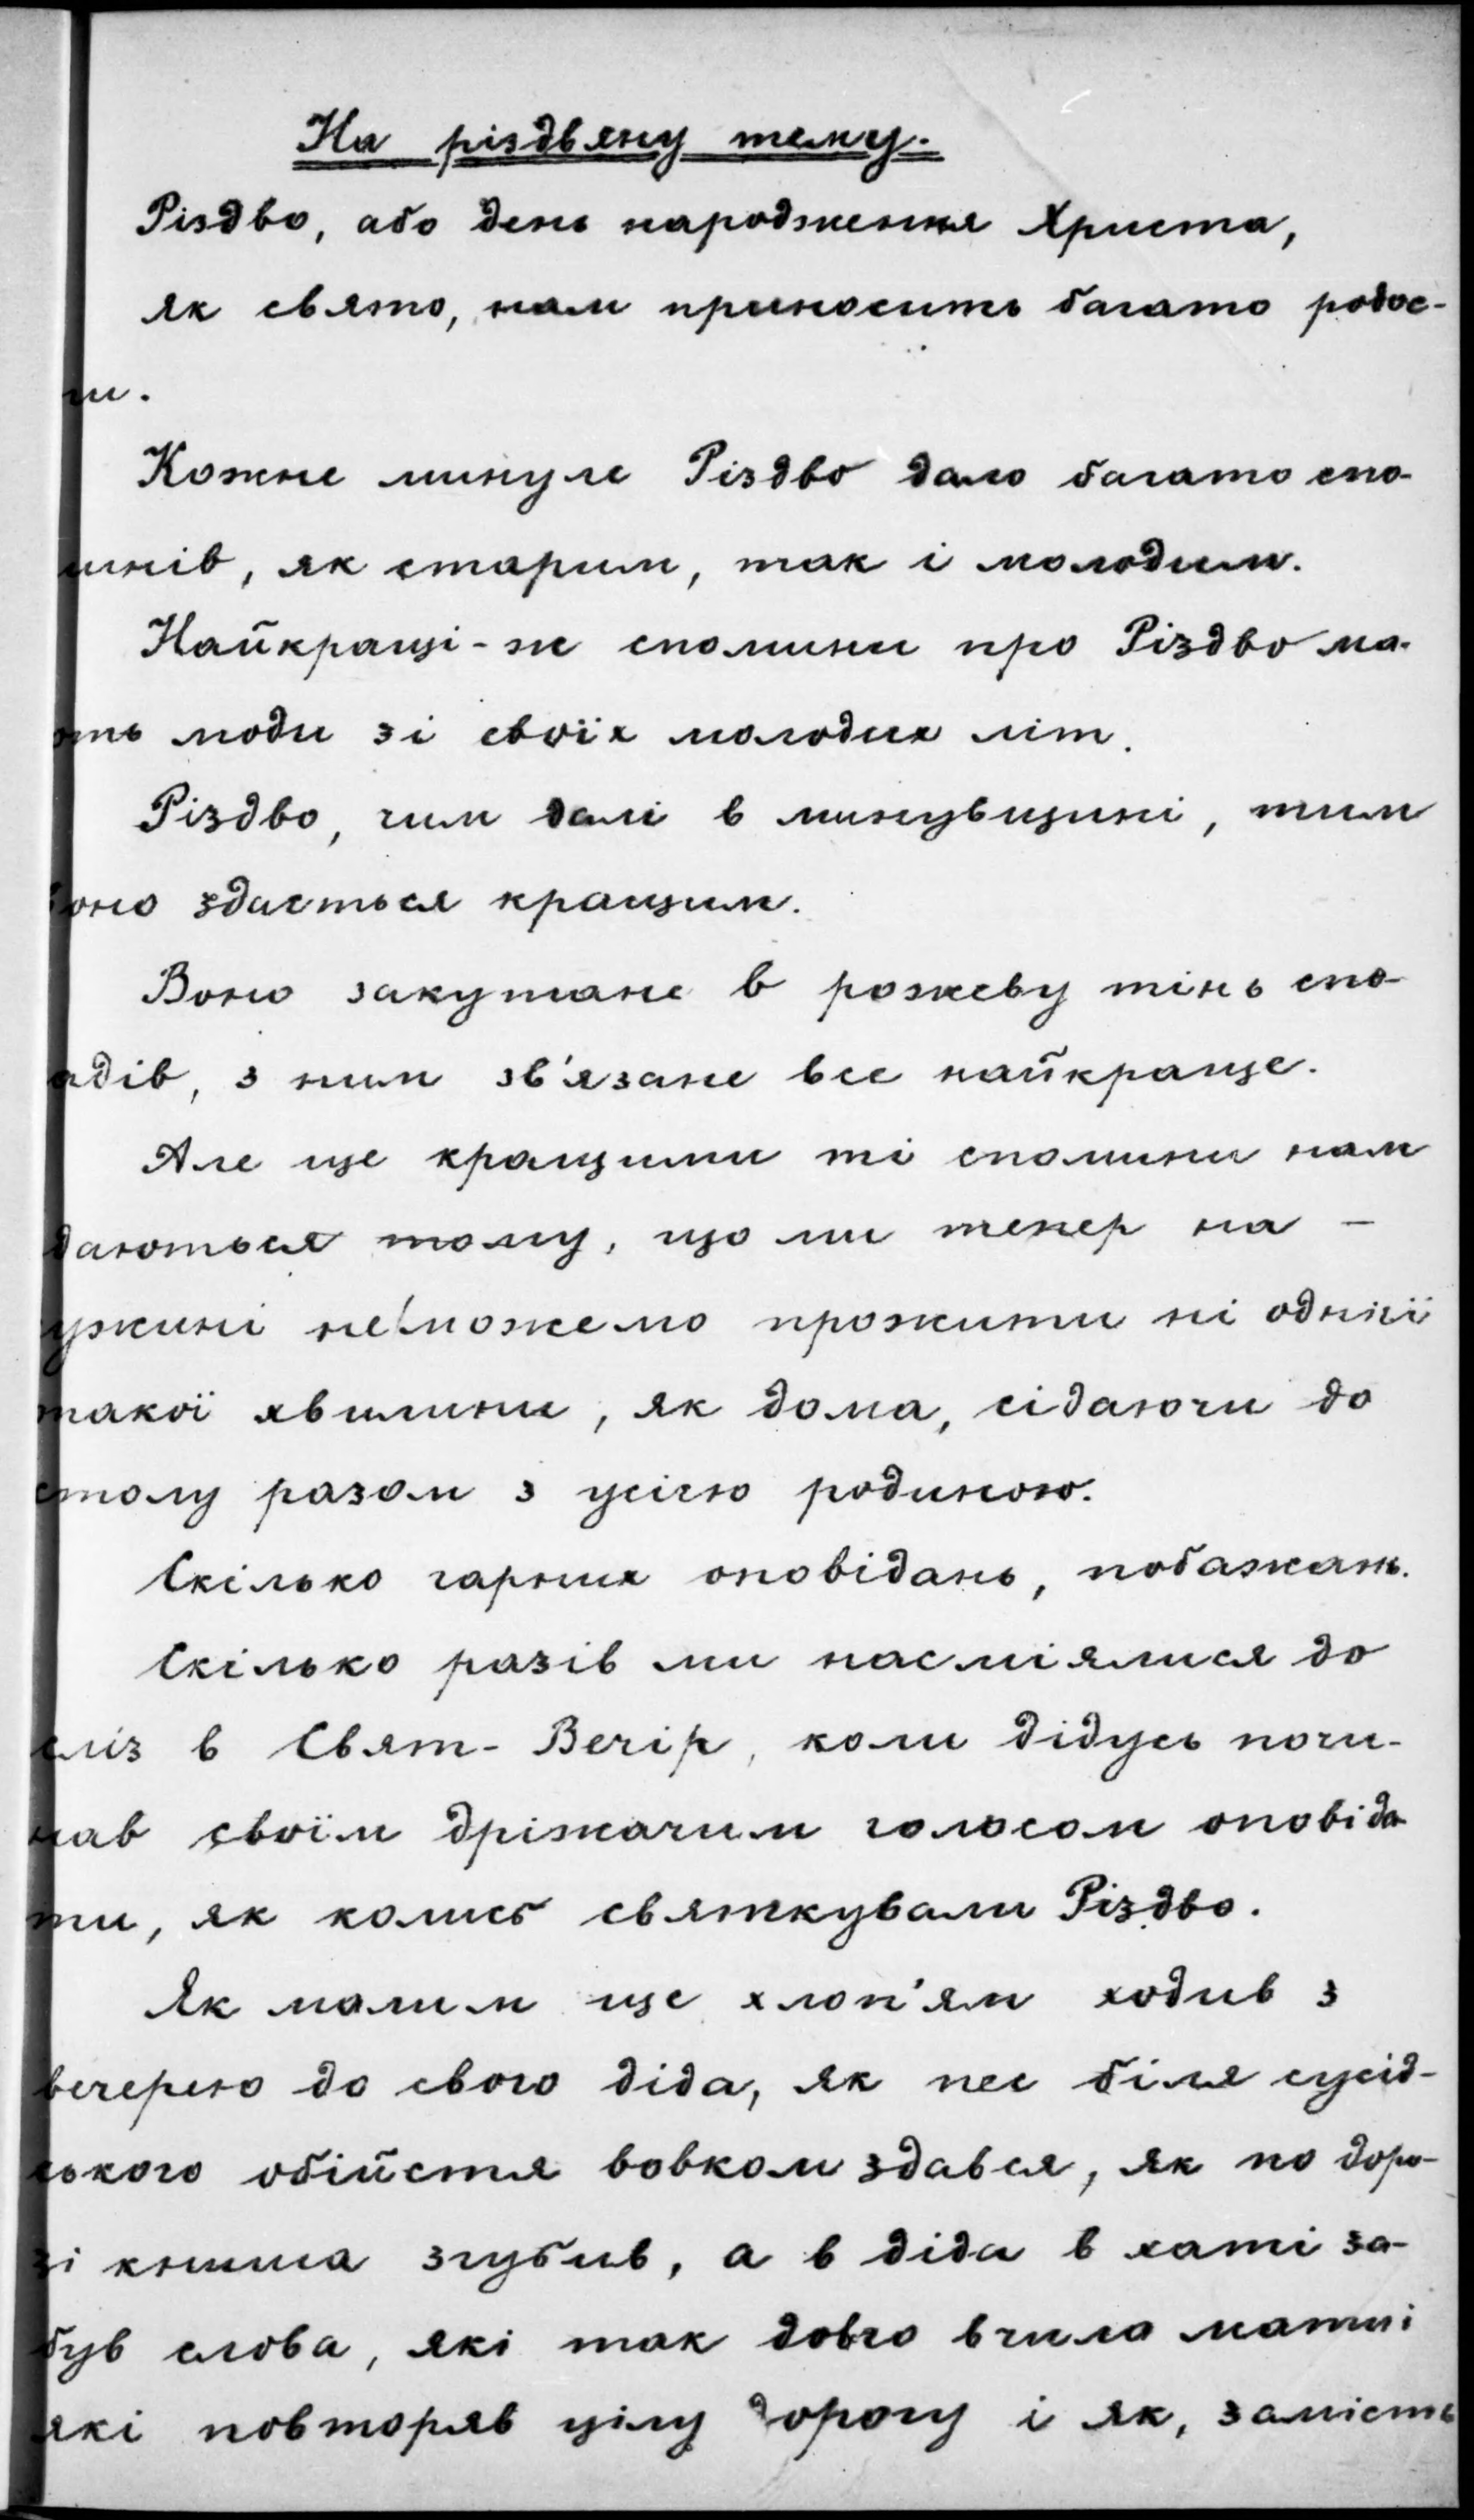 На різдвяну тему.
Різдво, або день народження Христа,
як свято, нам приносить багато родос-
ти.
Кожне минуле Різдво дало багато спо-
минів, як старим, так і молодим.
Найкращі-ж спомини про Різдво ма-
ють люди зі своїх молодих літ.
Різдво, чим далі в минувщині, тим
воно здається кращим.
Воно закутане в рожеву тінь спо-
гадів, з ним зв'язане все найкраще.
Але ще кращими ті спомини нам
здаються тому, що ми тепер на -
чужині не можемо прожити ні одніїї
такої хвилини, як дома, сідаючи до
столу разом з усією родиною.
Скілько гарних оповідань, побажань.
Скілько разів ми насміялися до
сліз в Свят-Вечір, коли дідусь почи-
нав своїм дріжачим голосом оповіда
ти, як колись святкували Різдво.
Як малим ще хлоп'ям ходив з
вечерею до свого діда, як пес біля сусід-
ського обійстя вовком здався, як по доро-
зі книша згубив, а в діда в хаті за-
був слова, які так довго вчила мати і
які повторяв цілу дорогу і як, замість